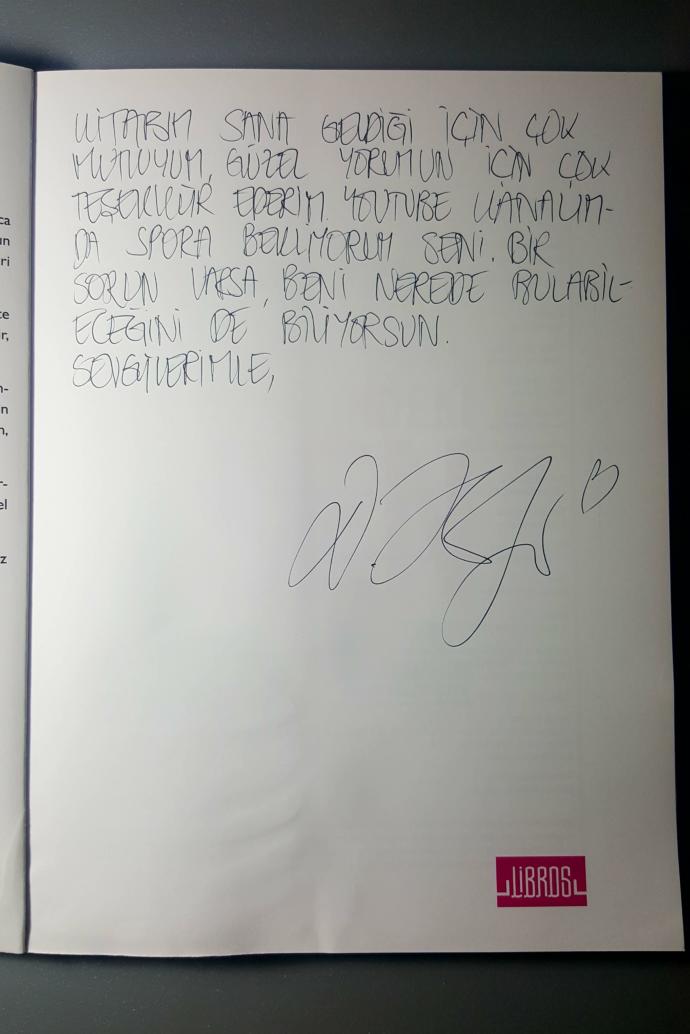 ca
un
ri
ce
r,
n-
n
n,
r-
el
z
KİTABIM SANA GELDİĞİ İÇİN ÇOK
MUTLUYUM, GÜZEL YORUMUN İÇİN ÇOK
TEŞEKKÜR EDERİM. YOUTUBE KANALIM-
DA SPORA BEKLİYORUM SENİ. BİR
SORUN VARSA, BENİ NEREDE BULABİL-
ECEĞİNİ DE BİLİYORSUN.
SEVGİLERİMLE,
LİBROS